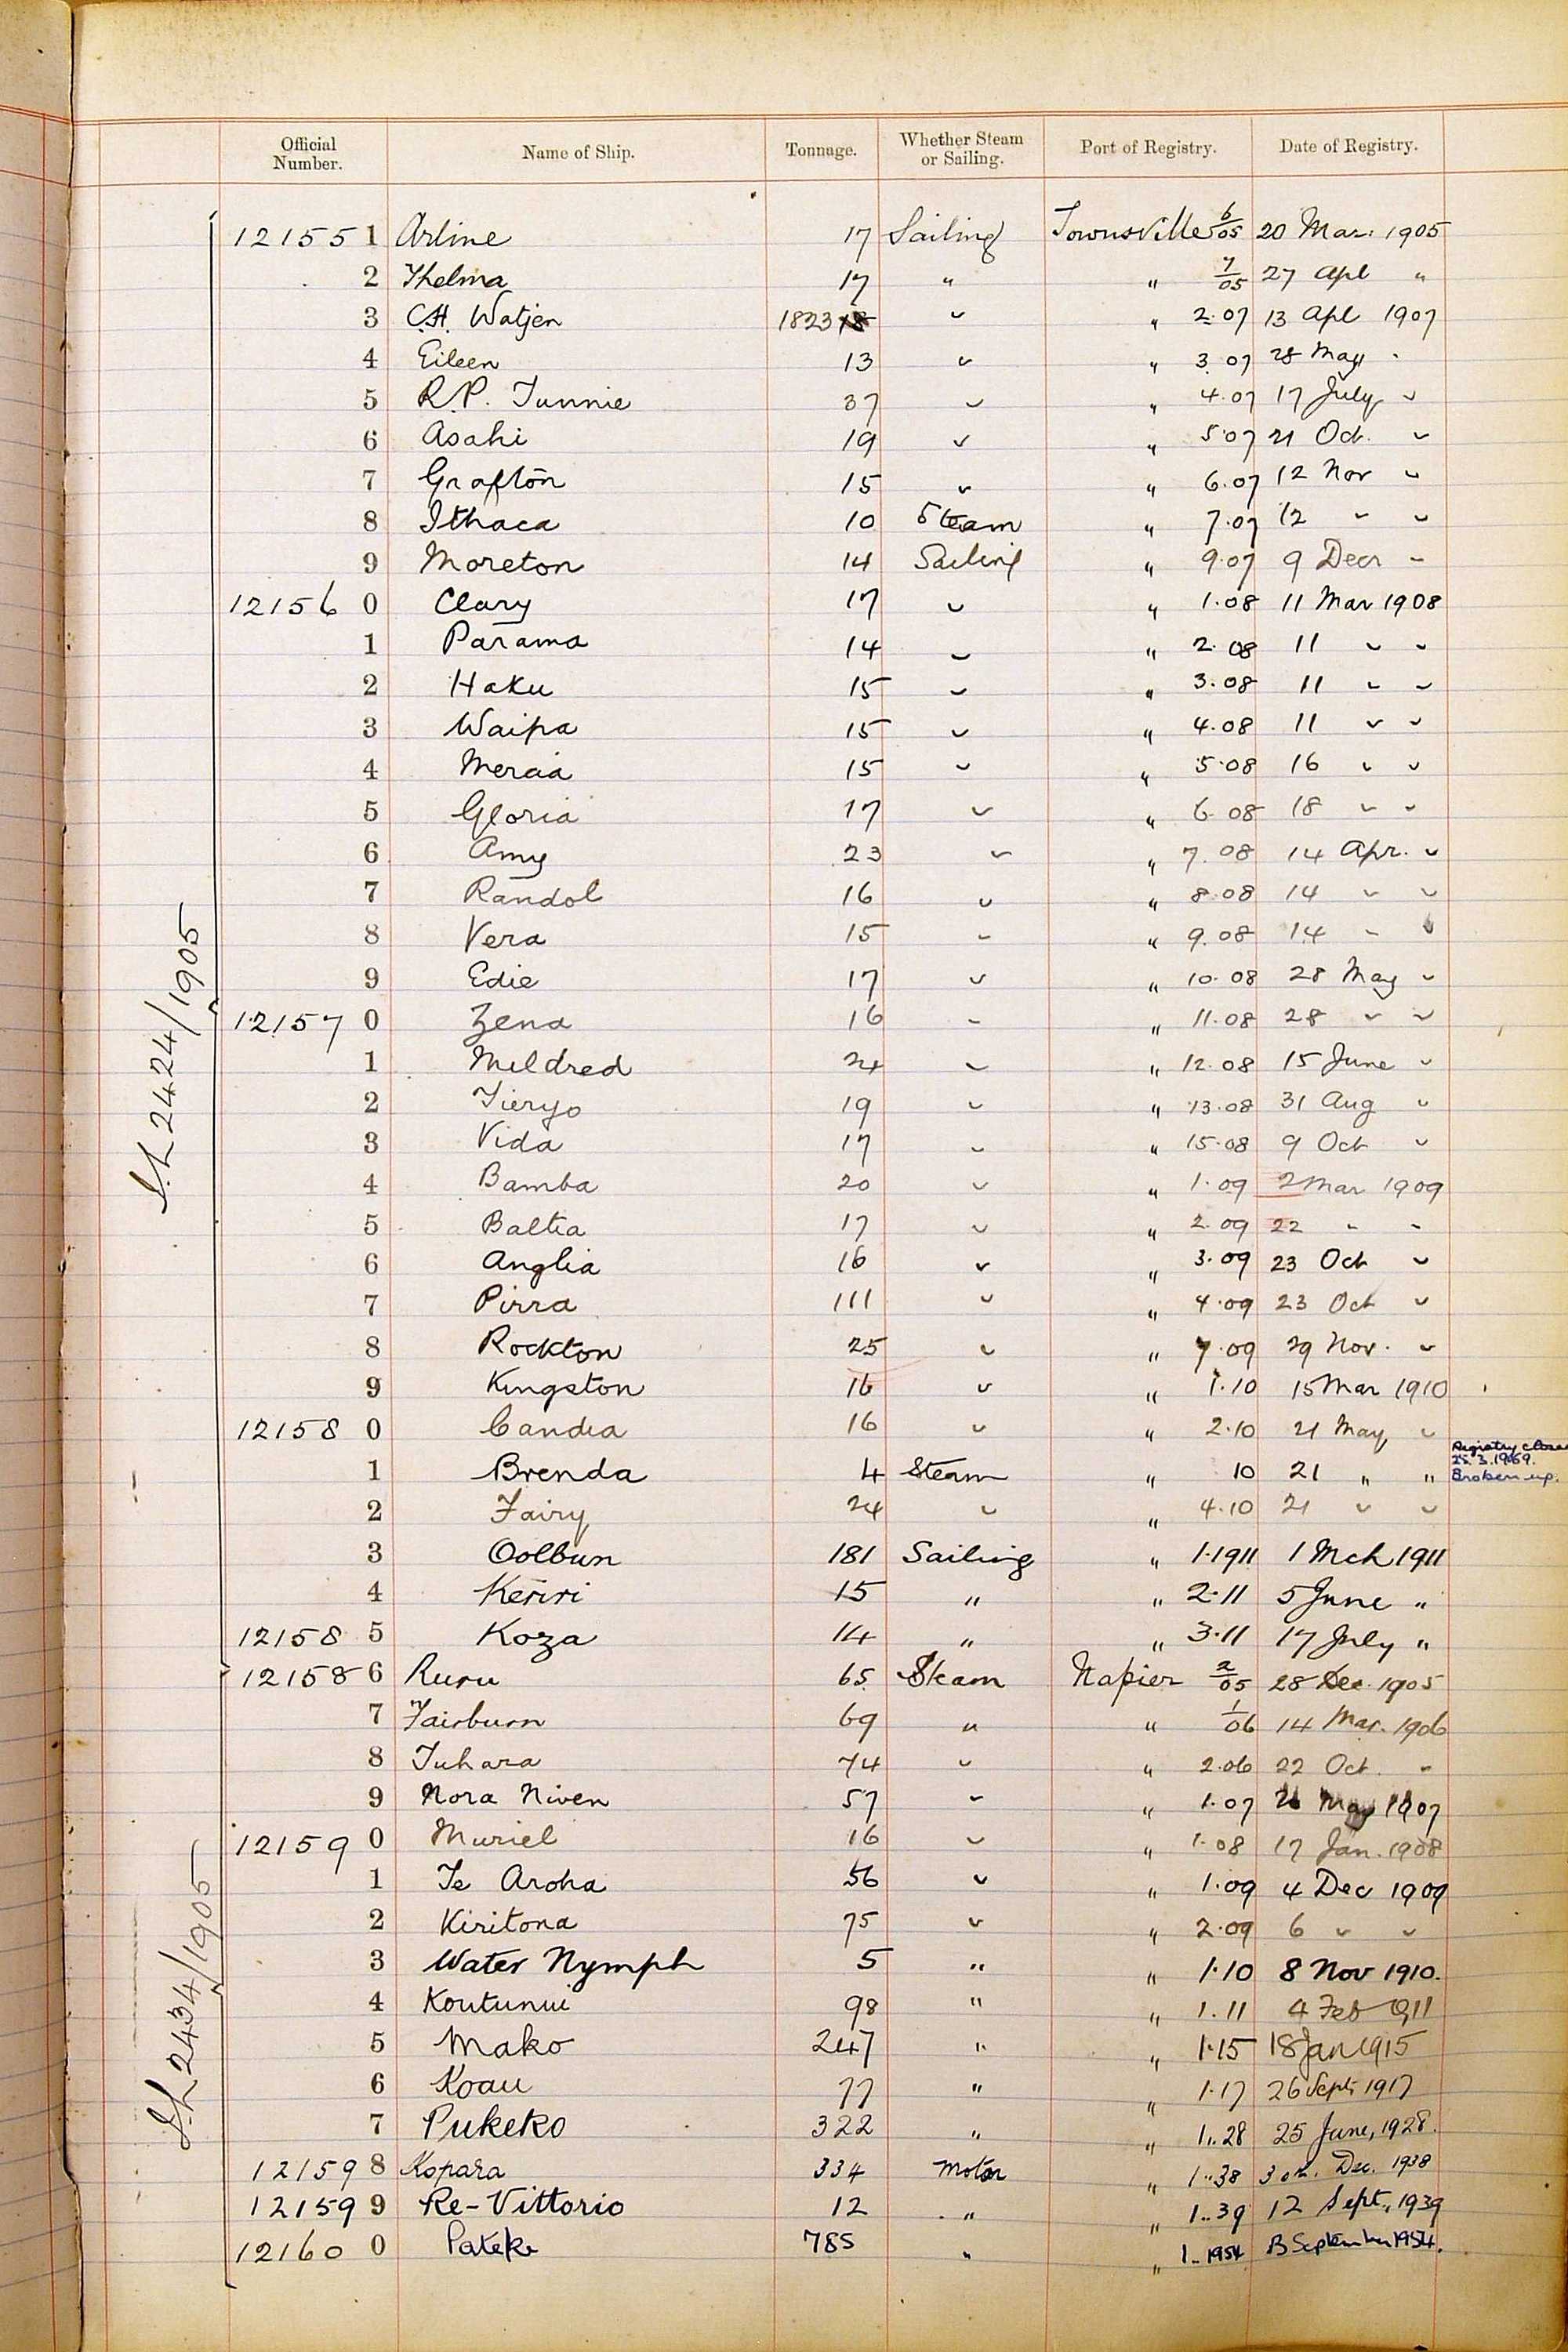 Official Number. Name of Ship. Tonnage. Whether Steam or Sailing. Port of Registry. Date of Registry.
12155 1 Arline 17 Sailing Townsville 6/05 20 Mar. 1905
2 Thelma 17 " " 7/05 27 Apl "
3 C.H. Watjen 1823 " " 2.07 13 Apl 1907
4 Eileen 13 " " 3.07 28 May "
5 R.P. Tunnie 37 " " 4.07 17 July "
6 Asahi 19 " " 5.07 21 Oct. "
7 Grafton 15 " " 6.07 12 Nov "
8 Ithaca 10 Steam " 7.07 12 " "
9 Moreton 14 Sailing " 9.07 9 Decr "
12156 0 Clary 17 " " 1.08 11 Mar 1908
1 Parama 14 " " 2.08 11 " "
2 Haku 15 " " 3.08 11 " "
3 Waipa 15 " " 4.08 11 " "
4 15 " " 5.08 16 " "
5 Gloria 17 " " 6.08 18 " "
6 Amy 23 " " 7.08 14 Apr. "
7 Randol 16 " " 8.08 14 " "
8 Vera 15 " " 9.08 14 " "
9 Edie 17 " " 10.08 28 May "
12157 0 Zena 16 " " 11.08 28 " "
1 Mildred 24 " " 12.08 15 June "
2 19 " " 13.08 31 Aug "
3 Vida 17 " " 15.08 9 Oct "
4 Bamba 20 " " 1.09 2 Mar 1909
5 Baltia 17 " " 2.09 22 " "
6 Anglia 16 " " 3.09 23 Oct "
7 Pirra 111 " " 4.09 23 Oct "
8 Rockton 25 " " 7.09 29 Nov. "
9 Kingston 16 " " 1.10 15 Mar 1910
12158 0 Candia 16 " " 2.10 21 May "
1 Brenda 4 Steam " 10 21 " "
Registry closed
25.3.1969.
Broken up.
2 Fairy 24 " " 4.10 21 " "
3 Oolbun 181 Sailing " 1.1911 1 Mch 1911
4 Keriri 15 " " 2.11 5 June "
12158 5 Koza 14 " " 3.11 17 July "
12158 6 Ruru 65 Steam Napier 2/05 28 Dec. 1905
7 Fairburn 69 " " 1/06 14 Mar. 1906
8 Tuhara 74 " " 2.06 22 Oct. "
9 Nora Niven 57 " " 1.07 May 1907
12159 0 Muriel 16 " " 1.08 17 Jan. 1908
1 Te Aroha 56 " " 1.09 4 Dec 1909
2 Kiritona 75 " " 2.09 6 " "
3 Water Nymph 5 " " 1.10 8 Nov 1910.
4 Koutunui 98 " " 1.11 4 Feb 1911
5 Mako 247 " " 1.15 18 Jan 1915
6 Koau 77 " " 1.17 26 Sept 1917
7 Pukeko 322 " " 1..28 25 June, 1928.
12159 8 Kopara 334 Motor " 1..38 30th. Dec. 1938
12159 9 Re-Vittorio 12 " " 1..39 12 Sept., 1939
12160 0 Pateke 785 " " 1..1954 13 September 1954.
2424/1905
2434/1905